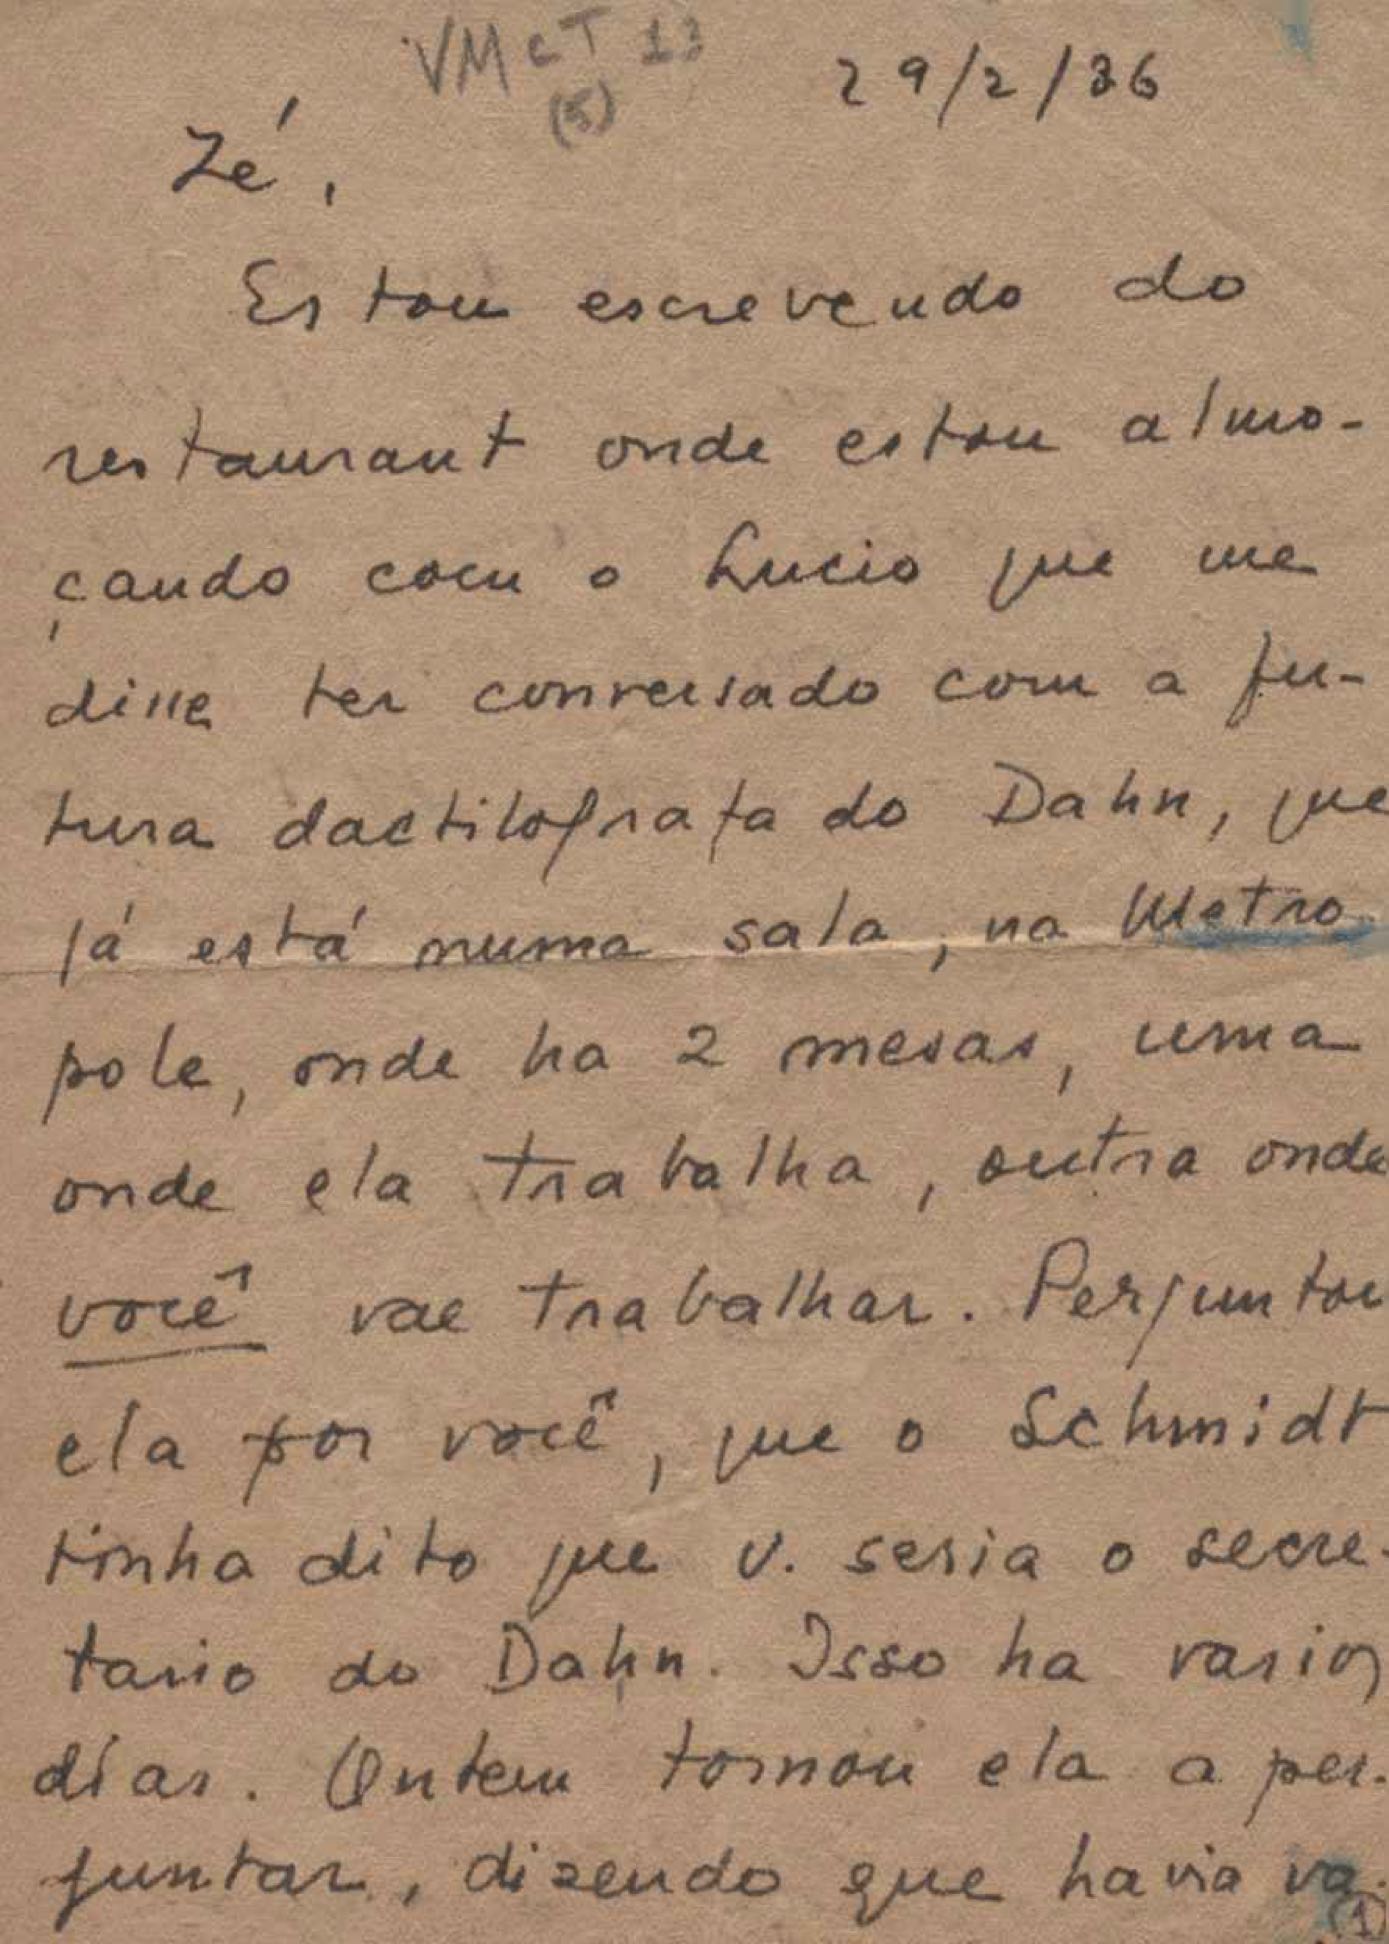 VMcT 13
(5)
29/2/36
Zé,
Estou escrevendo do
restaurant onde estou almo-
çando com o Lucio que me
disse ter conversado com a fu-
tura dactilografa do Dahn, que
já está numa sala, na Metro
pole, onde ha 2 mesas, uma
onde ela trabalha, outra onde
você vae trabalhar. Perguntou
ela por você, que o Schmidt
tinha dito que v. seria o secre-
tario do Dahn. Isso ha varios
dias. Ontem tornou ela a per-
guntar, dizendo que havia va-
(1)